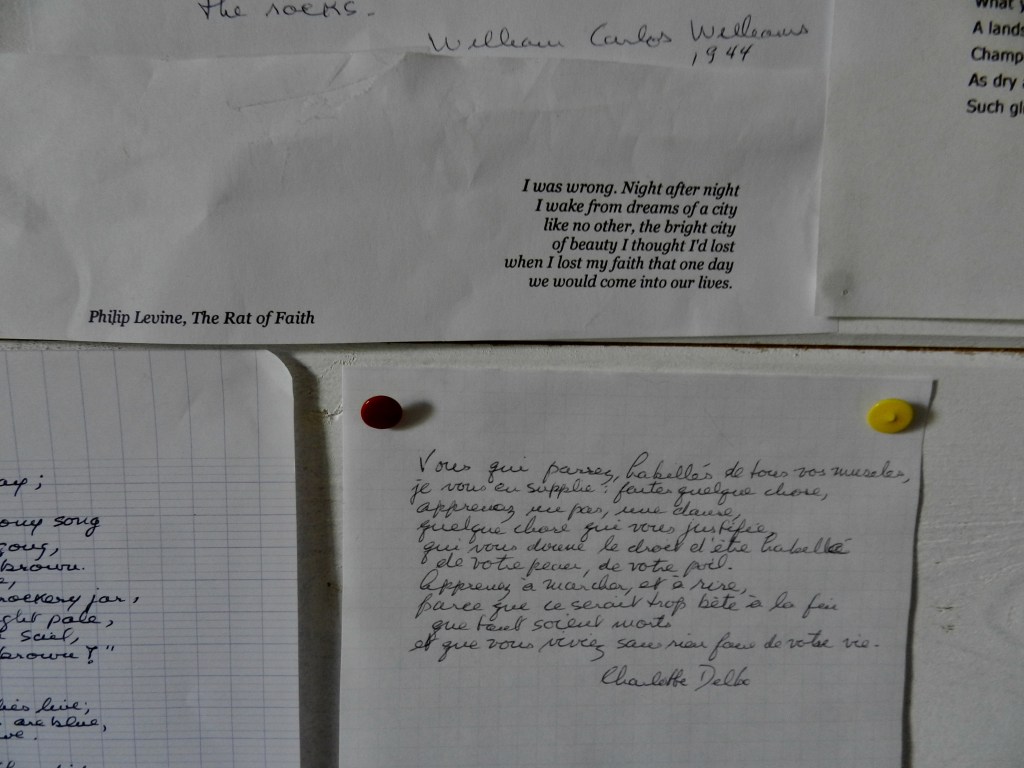 the rocks.
William Carlos Williams
1944
What y
A lands
Champ
As dry
Such gl
I was wrong. Night after night
I wake from dreams of a city
like no other, the bright city
of beauty I thought I'd lost
when I lost my faith that one day
we would come into our lives.
Philip Levine, The Rat of Faith
ay;
song
brown.
crockery jar,
ght pale,
sail,
brown?"
live;
are blue,
Vous qui passez, habillés de tous vos muscles,
je vous en supplie : faites quelque chose,
apprenez un pas, une danse,
quelque chose qui vous justifie,
qui vous donne le droit d'être habillé
de votre peau, de votre poil.
Apprenez à marcher, et à rire,
parce que ce serait trop bête à la fin
que tant soient morts
et que vous viviez sans rien faire de votre vie.
Charlotte Delbo